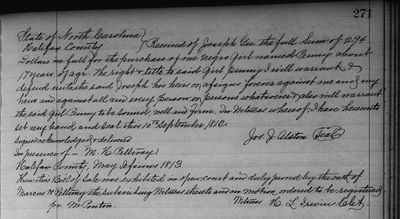 271
State of North Carolina
Halifax County } Received of Joseph Gee the full Sum of 294
Dollars in full for the purchase of one Negro Girl named Penny about
17 years of age. The right & title to said Girl Penny I will warrant &
defend unto the said Joseph his heirs or assigns forever against me and my
heirs and against all and every person or persons whatsoever & also will warrant
the said Girl Penny to be sound, well and firm. In Witness whereof I have hereunto
set my hand and seal this 10th September 1812.
Signed acknowledged & delivered Jos. J. Alston Seal
In presence of — M. H. Pettway
Halifax County, May Sessions 1813.
Then this Bill of Sale was exhibited in open court and duly proved by the oath of
Marcus H Pettway the subscribing Witness thereto and on motion, ordered to be registered
Witness R. L. Irwin Clk.